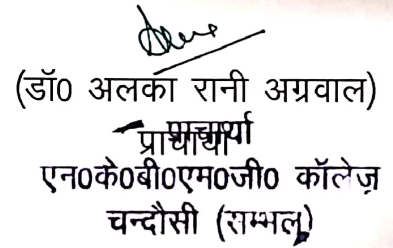 (डॉ0 अलका रानी अग्रवाल)
प्राचार्या
प्राचार्या
एन0के0बी0एम0जी0 कॉलेज़
चन्दौसी (सम्भल)